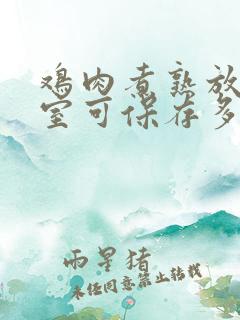 鸡肉煮熟放
室可保存多
雨星猪
未经同意禁止转载